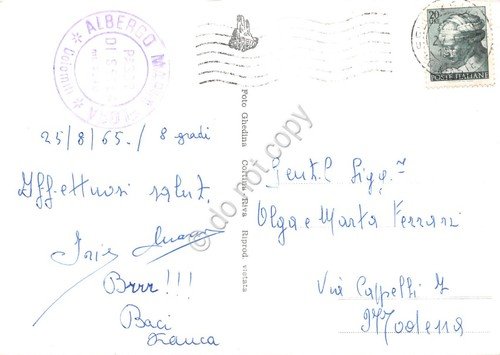 ALBERGO
Dolomiti
20
POSTE ITALIANE
Foto Ghedina Cortina Riprod. vietata
do not copy
25/8/65./ 8 gradi
Affettuosi saluti
Brrr!!!
Baci
Franca
Gentil. Sigg.
Olga e Marta Ferrari
Via Cappelli 7
Modena